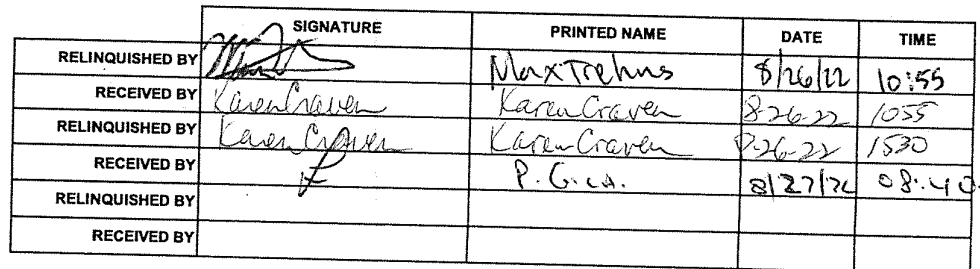 SIGNATURE PRINTED NAME DATE TIME
RELINQUISHED BY Max 8/26/22 10:55
RECEIVED BY Karen Craven Karen Craven 8-26-22 1055
RELINQUISHED BY Karen Craven Karen Craven 8-26-22 1530
RECEIVED BY P. 8/27/22 08:40
RELINQUISHED BY
RECEIVED BY